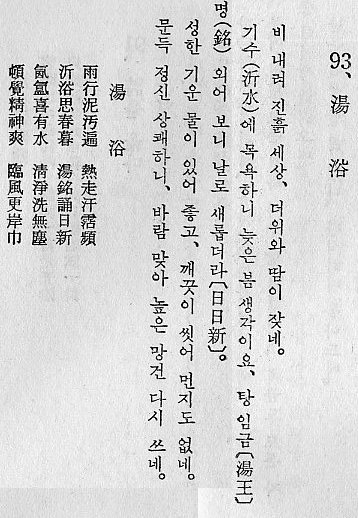 93、 湯 浴
비 내려 진흙 세상、더위와 땀이 잦네。
기수(沂水)에 목욕하니 늦은 봄 생각이요、탕 임금〔湯王〕
명(銘) 외어 보니 날로 새롭더라〔日日新〕。
성한 기운 물이 있어 좋고、깨끗이 씻어 먼지도 없네。
문득 정신 상쾌하니、바람 맞아 높은 망건 다시 쓰네。
湯 浴
雨行泥汚遍 熱走汗霑頻
沂浴思春暮 湯銘誦日新
氤氳喜有水 清淨洗無塵
頓覺精神爽 臨風更岸巾